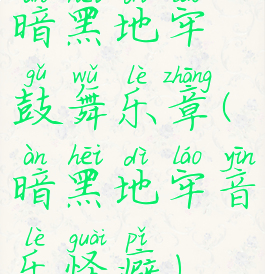 àn hēi dì láo
暗黑地牢
gǔ wǔ lè zhāng
鼓舞乐章(
àn hēi dì láo yīn
暗黑地牢音
lè guài pǐ
乐怪癖)